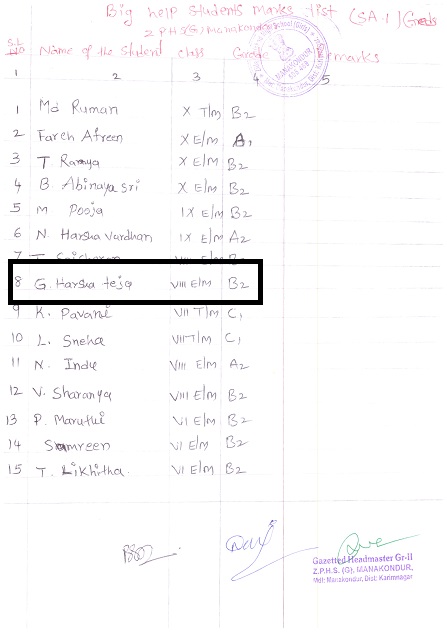 Big help students Marks list (SA-1) Grads
Z P H S (G) Manakondur
S.L No Name of the Student class Grade Remarks
1 2 3 4 5
1 Md Ruman X T/m B2
2 Fareh Afreen X E/m A1
3 T. Ramya X E/m B2
4 B. Abinaya sri X E/m B2
5 M Pooja IX E/m B2
6 N. Harsha vardhan IX E/m A2
7 T. Saicharan
8 G. Harsha teja VIII E/m B2
9 K. Pavani VII T/m C1
10 L. Sneha VII T/m C1
11 N. Indu VIII E/m A2
12 V. Sharanya VIII E/m B2
13 P. Maruthi VI E/m B2
14 Samreen VI E/m B2
15 T. Likhitha. VI E/M B2
Gazetted Headmaster Gr-II
Z.P.H.S. (G). MANAKONDUR,
Mdl: Manakondur, Dist: Karimnagar